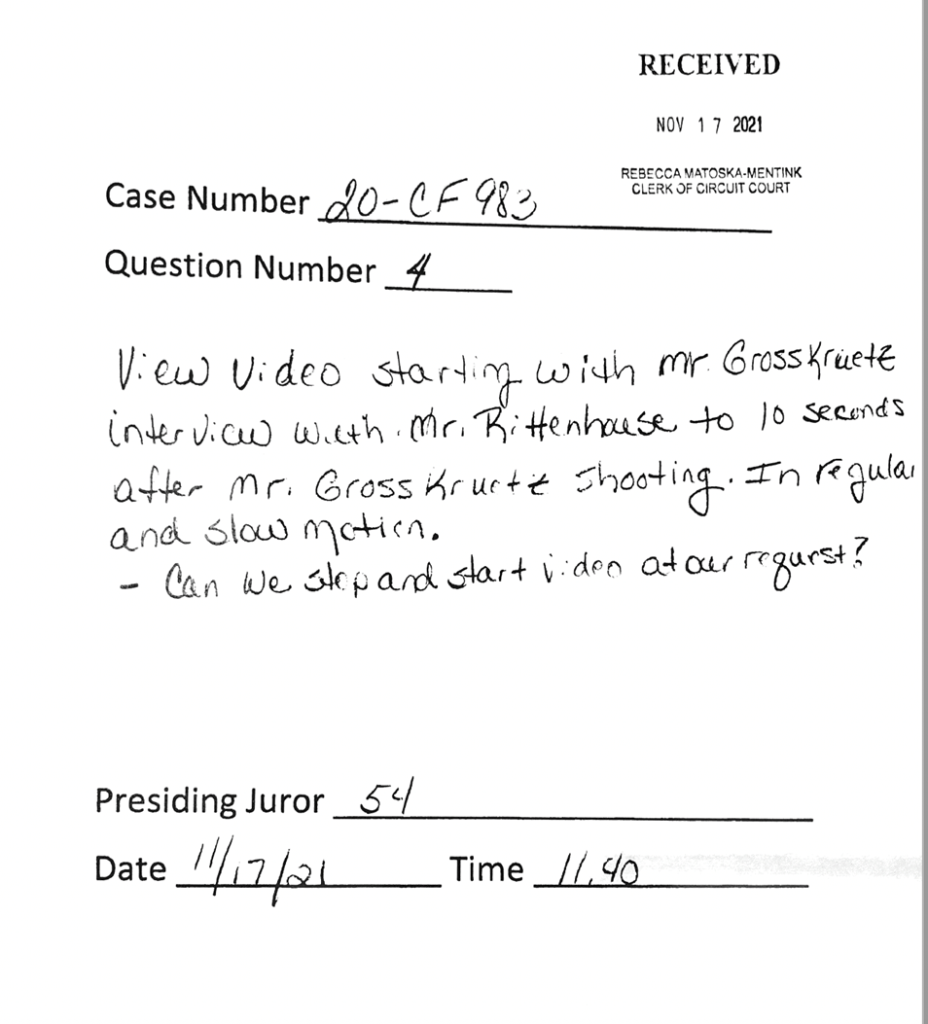 RECEIVED
NOV 17 2021
REBECCA MATOSKA-MENTINK
CLERK OF CIRCUIT COURT
Case Number 20-CF 983
Question Number 4
View video starting with mr. GrossKruetz
interview with Mr. Rittenhouse to 10 seconds
after Mr. GrossKruetz shooting. In regular
and slow motion.
- Can we stop and start video at our request?
Presiding Juror 54
Date 11/17/21 Time 11.40